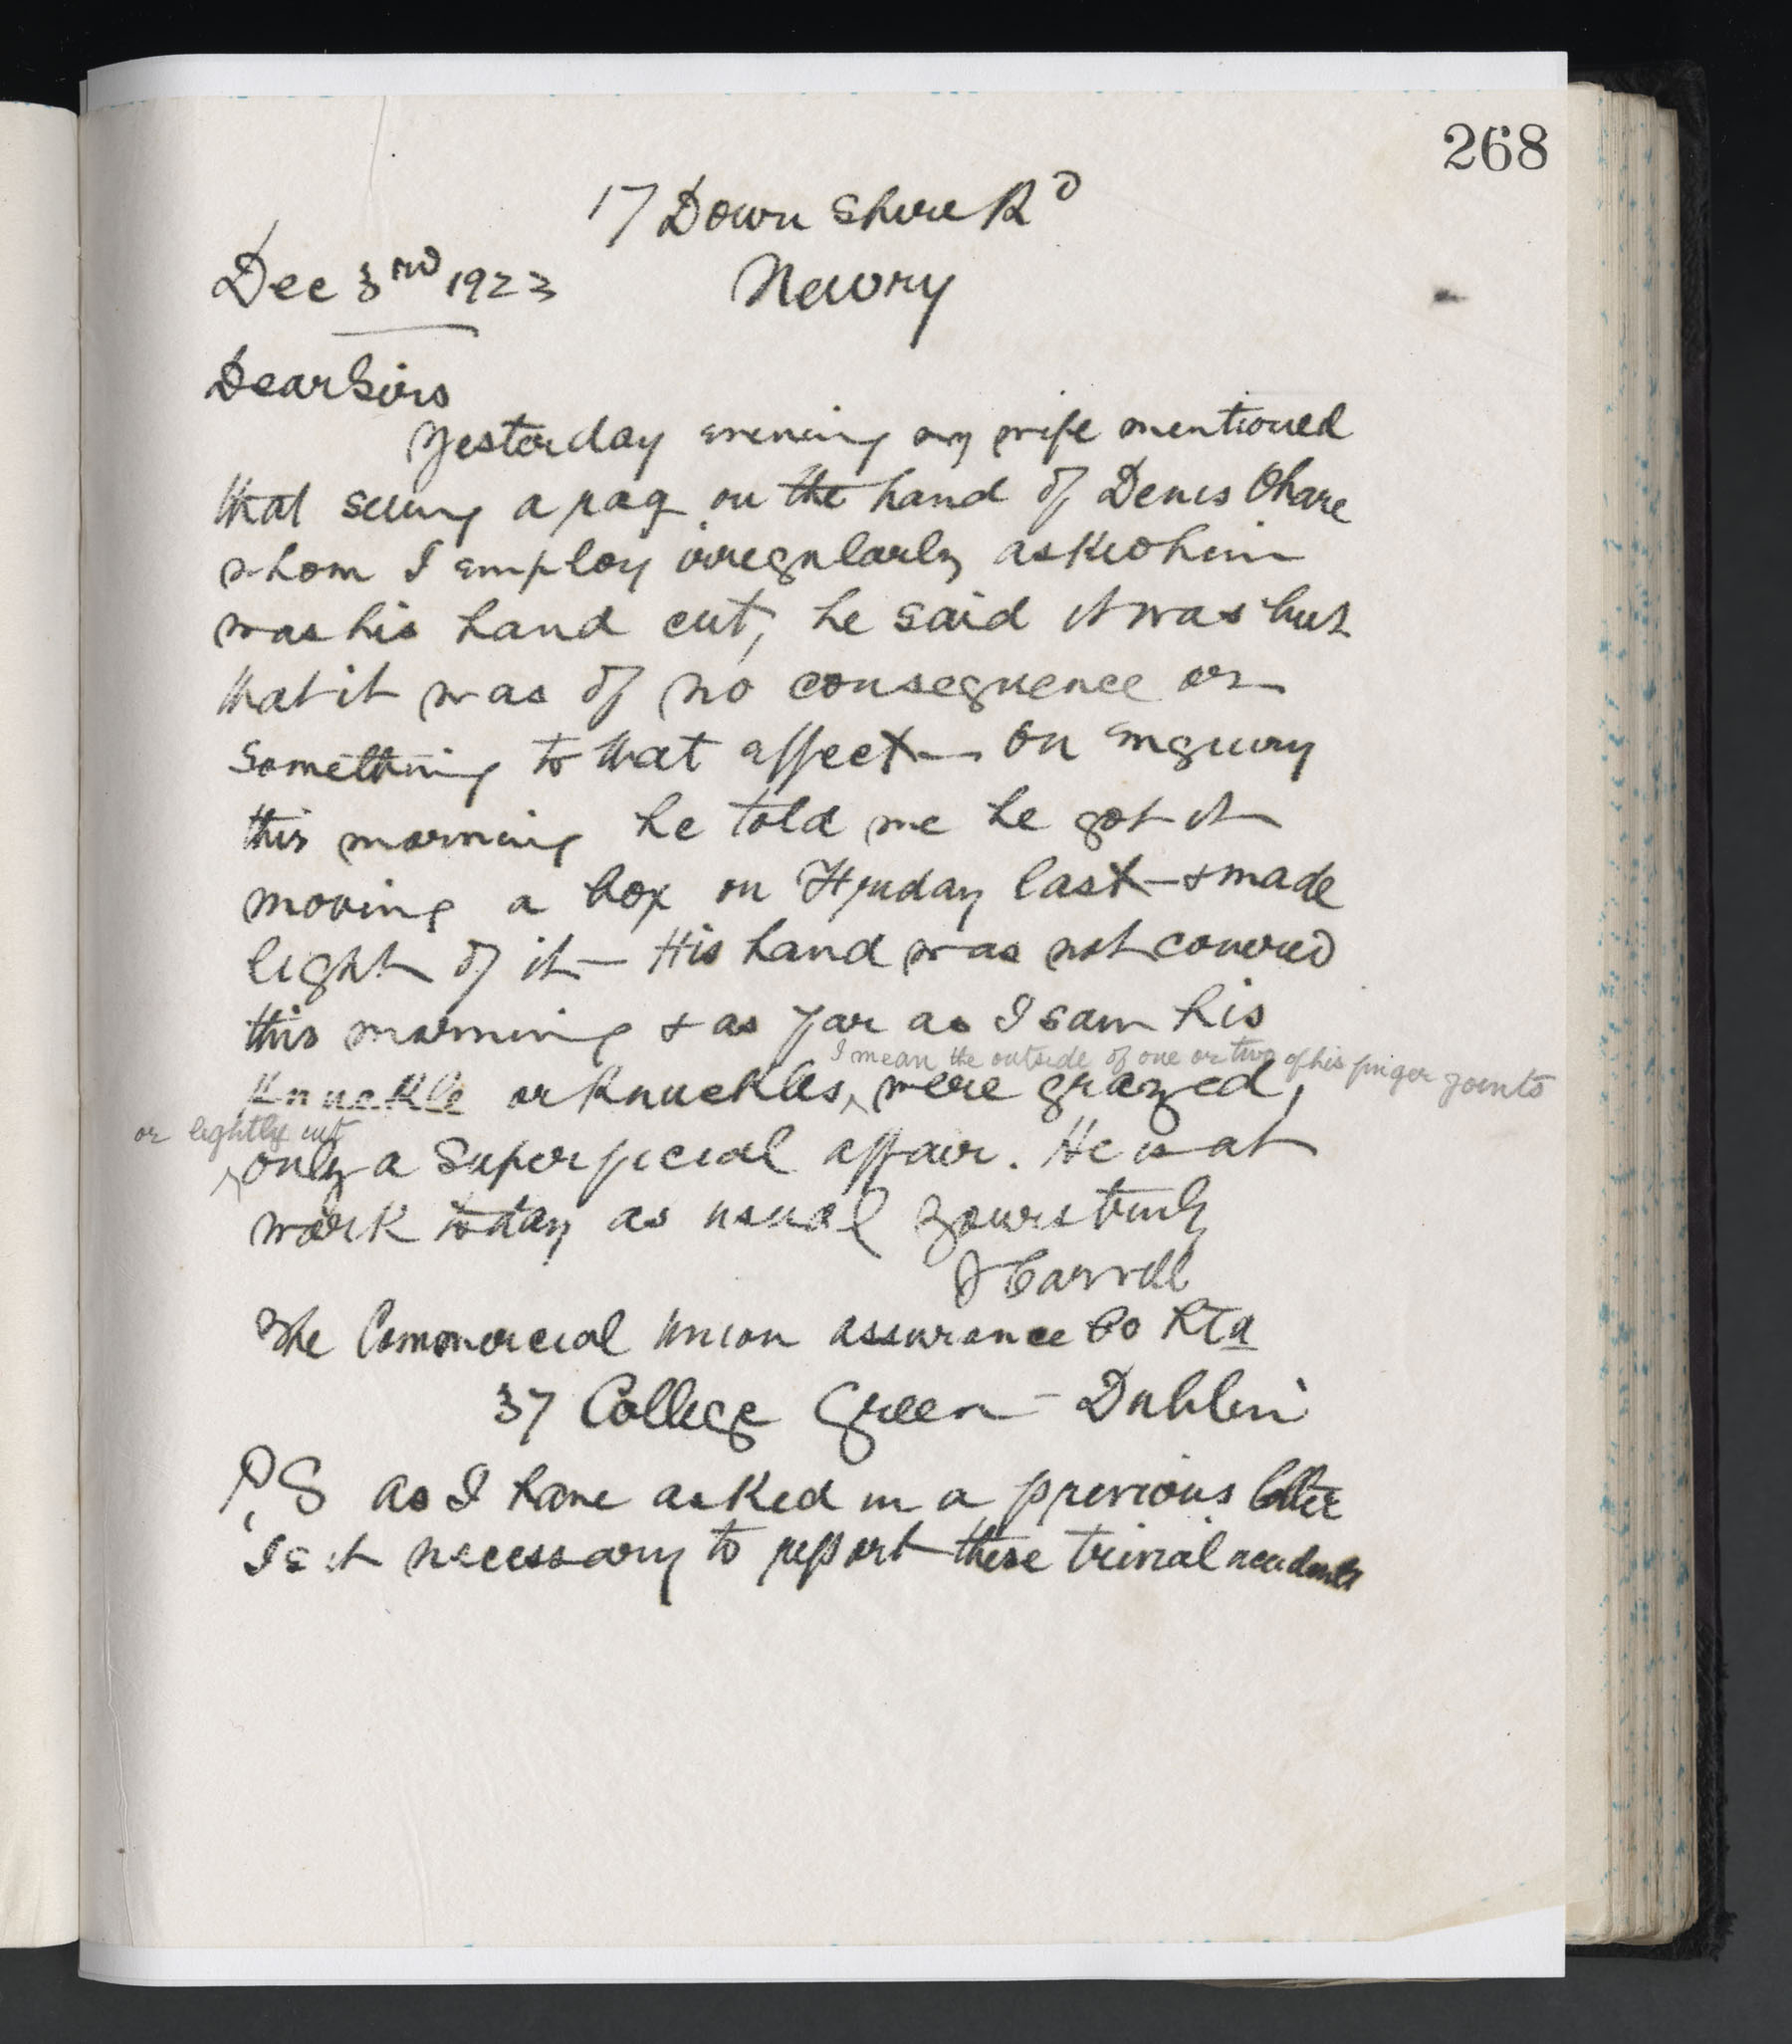 268
17 Downshire Rd
Dec 3rd 1923 Newry
Dear Sirs
Yesterday evening my wife mentioned
that seeing a rag on the hand of Denis Ohare
whom I employ irregularly asked him
was his hand cut, he said it was but
that it was of no consequence or
something to that effect - On enquiry
this morning he told me he got it
moving a box on Friday last - & made
light of it - His hand was not covered
this morning & as far as I saw his
I mean the outside of one or two of his finger joints
knuckle or knuckles ^ were grazed,
or lightly cut
^ only a superficial affair. He is at
work today as usual yours truly
J Carroll
The Commercial Union Assurance Co Ltd
37 College Green - Dublin
P.S as I have asked in a previous letter
Is it necessary to report these trivial accidents